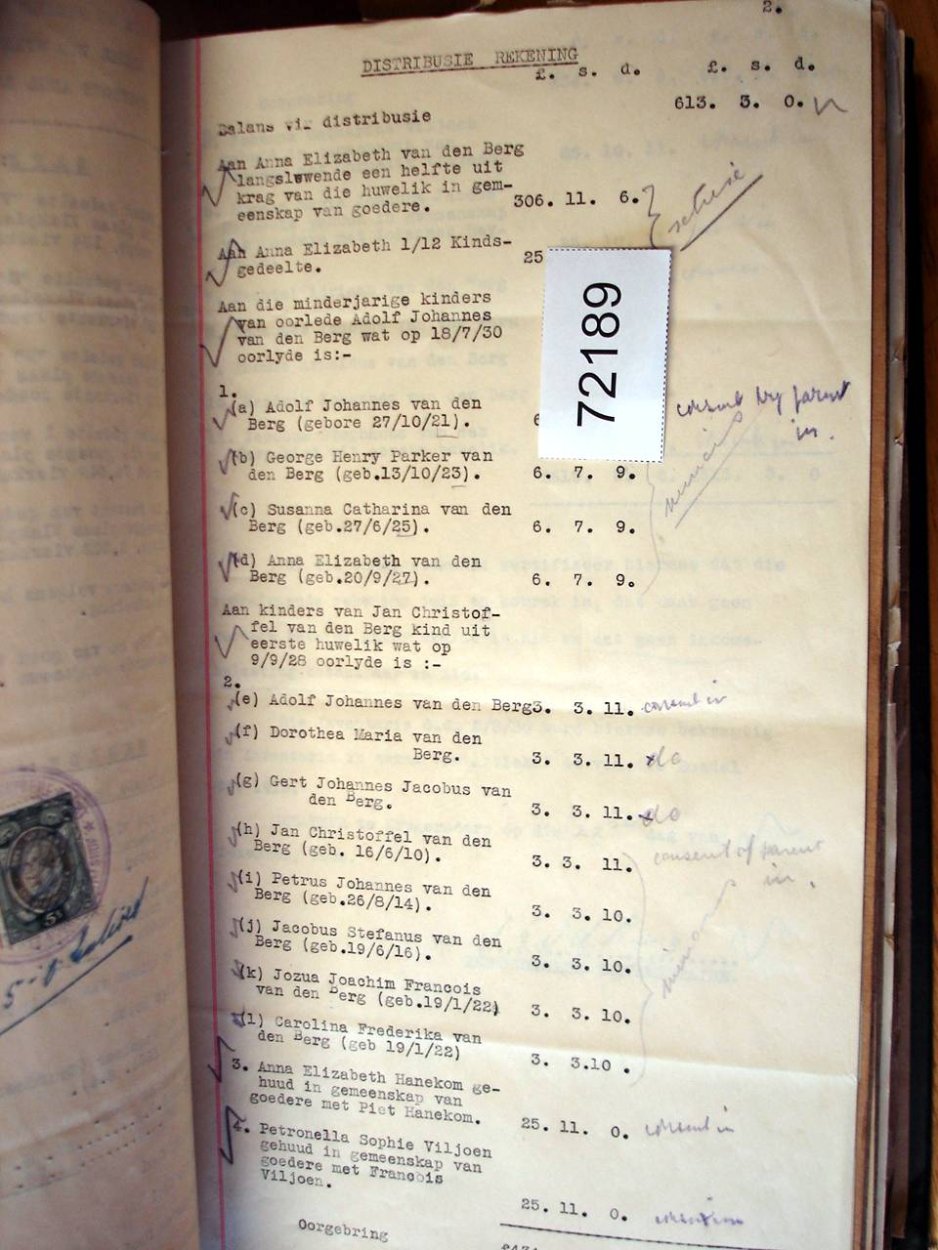 2.
DISTRIBUSIE REKENING
£. s. d. £. s. d.
613. 3. 0.
Balans vir distribusie
Aan Anna Elizabeth van den Berg
langslewende een helfte uit
krag van die huwelik in gem-
eenskap van goedere. 306. 11. 6.
Aan Anna Elizabeth 1/12 Kinds-
gedeelte. 25
72189
Aan die minderjarige kinders
van oorlede Adolf Johannes
van den Berg wat op 18/7/30
oorlyde is:-
1.
(a) Adolf Johannes van den
Berg (gebore 27/10/21). 6
consent by parent
in.
(b) George Henry Parker van
den Berg (geb.13/10/23). 6. 7. 9.
minors
(c) Susanna Catharina van den
Berg (geb.27/6/25). 6. 7. 9.
(d) Anna Elizabeth van den
Berg (geb.20/9/27). 6. 7. 9.
Aan kinders van Jan Christof-
fel van den Berg kind uit
eerste huwelik wat op
9/9/28 oorlyde is :-
2.
(e) Adolf Johannes van den Berg 3. 3. 11. consent in
(f) Dorothea Maria van den
Berg. 3. 3. 11. do
(g) Gert Johannes Jacobus van
den Berg. 3. 3. 11. do
(h) Jan Christoffel van den
Berg (geb. 16/6/10). 3. 3. 11.
consent of parent
in.
(i) Petrus Johannes van den
Berg (geb.26/8/14). 3. 3. 10.
(j) Jacobus Stefanus van den
Berg (geb.19/6/16). 3. 3. 10.
(k) Jozua Joachim Francois
van den Berg (geb.19/1/22) 3. 3. 10.
(l) Carolina Frederika van
den Berg (geb 19/1/22) 3. 3.10 .
3. Anna Elizabeth Hanekom ge-
huud in gemeenskap van
goedere met Piet Hanekom. 25. 11. 0. consent in
4. Petronella Sophie Viljoen
gehuud in gemeenskap van
goedere met Francois
Viljoen. 25. 11. 0. consent in
Oorgebring